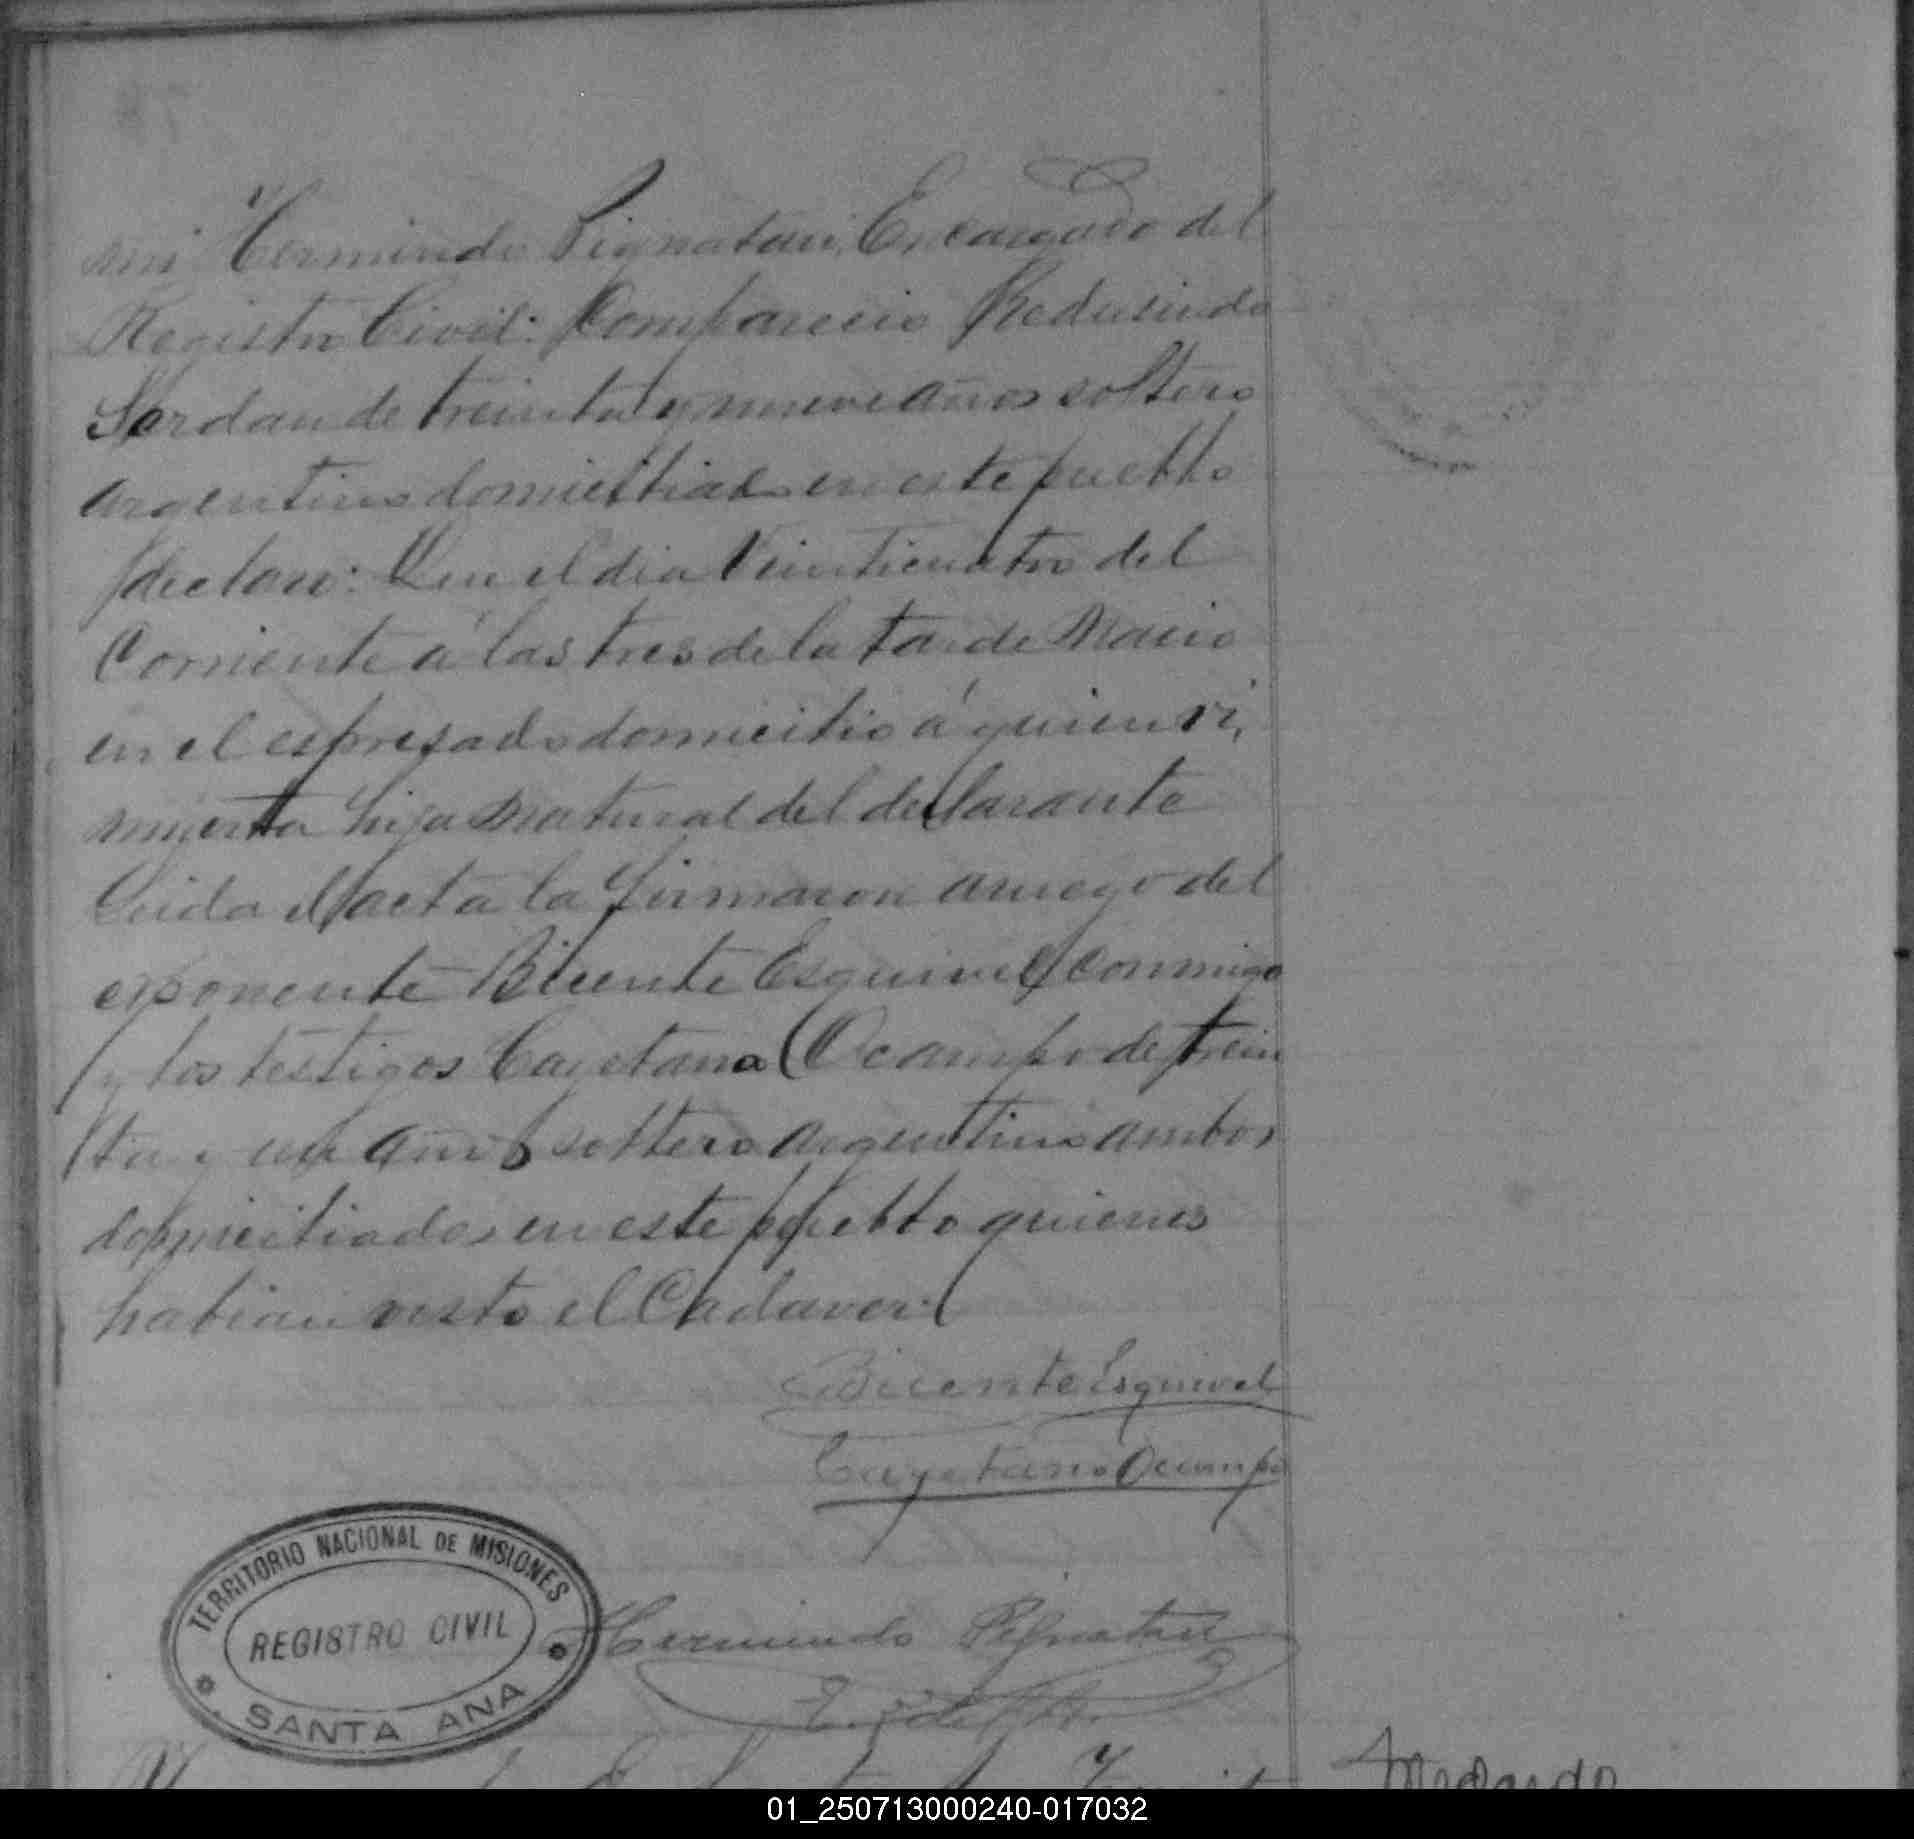 mi Hermindo Pignatari, Encargado del
Registro Civil: Comparecio Redusindo
Jordan de treinta y nueve años soltero
argentino domiciliado en este pueblo
declaro: Que el dia Veinticuatro del
Corriente á las tres de la tarde Nacio
en el espresado domicilio á quien vi,
muerta hija natural del declarante
Leida el acta la firmaron aruego del
exponente Bicente Esquivel, conmigo
y los testigos Cayetano Ocampo de trein
ta y un años soltero argentino ambos
domiciliados en este pueblo quienes
habian visto el Cadaver.
Bicente Esquivel
Cayetano Ocampo
TERRITORIO NACIONAL DE MISIONES
REGISTRO CIVIL
SANTA ANA
Hermindo Pignatari
Medardo
01_250713000240-017032